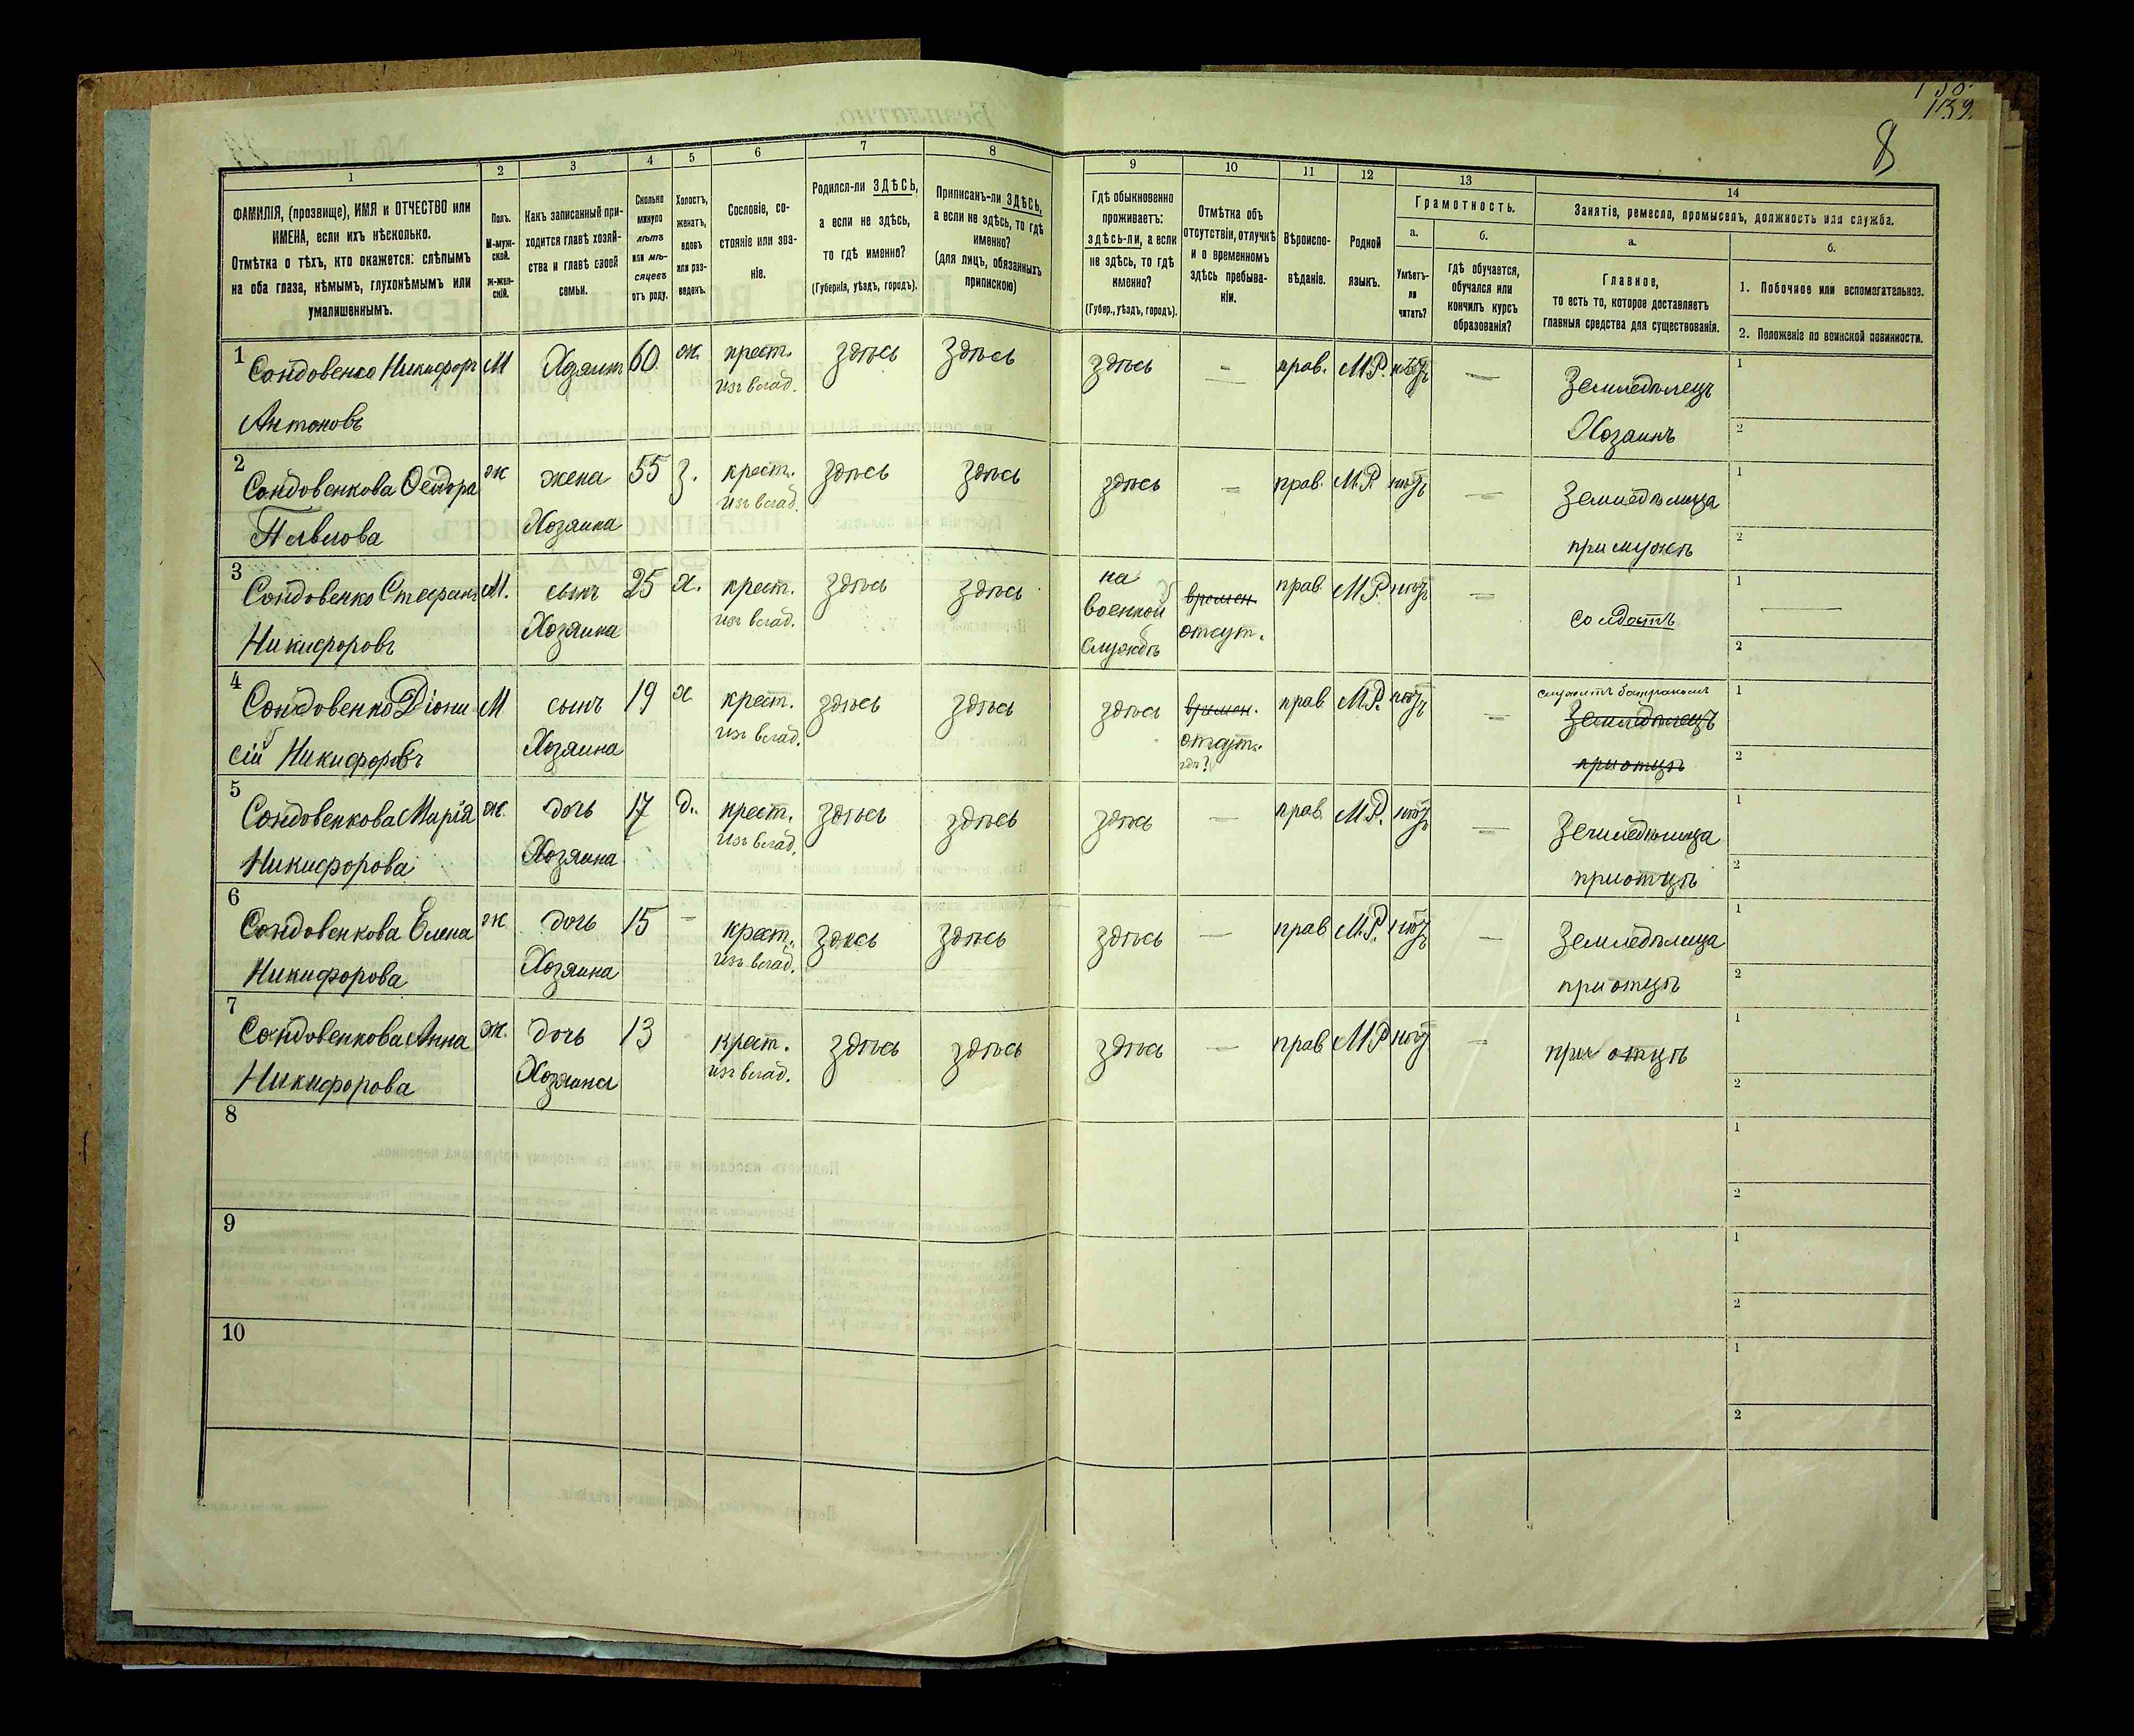 139.
8
1
2
3
4
5
6
7
8
9
10
11
12
13
14
ФАМИЛІЯ, (прозвище), ИМЯ и ОТЧЕСТВО или
ИМЕНА, если ихъ нѣсколько.
Отмѣтка о тѣхъ, кто окажется: слѣпымъ
на оба глаза, нѣмымъ, глухонѣмымъ или
умалишеннымъ.
Полъ.
М-муж-
ской.
Ж-жен-
скій.
Какъ записанный при-
ходится главѣ хозяй-
ства и главѣ своей
семьи.
Сколько
минуло
лѣтъ
или мѣ-
сяцевъ
отъ роду.
Холостъ,
женатъ,
вдовъ
или раз-
веденъ.
Сословіе, со-
стояніе или зва-
ніе.
Родился-ли ЗДѢСЬ,
а если не здѣсь,
то гдѣ именно?
(Губернія, уѣздъ, городъ).
Приписанъ-ли ЗДѢСЬ,
а если не здѣсь, то гдѣ
именно?
(для лицъ, обязанныхъ
припискою)
Гдѣ обыкновенно
проживаетъ:
здѣсь-ли, а если
не здѣсь, то гдѣ
именно?
(Губер., уѣздъ, городъ).
Отмѣтка объ
отсутствіи, отлучкѣ
и о временномъ
здѣсь пребыва-
ніи.
Вѣроиспо-
вѣданіе.
Родной
языкъ.
Грамотность.
а.
Умѣетъ-
ли
читать?
б.
гдѣ обучается,
обучался или
кончилъ курсъ
образованія?
Занятіе, ремесло, промыселъ, должность или служба.
а.
Главное,
то есть то, которое доставляетъ
главныя средства для существованія.
б.
1. Побочное или вспомогательное.
2. Положеніе по воинской повинности.
1 Сондовенко Никифоръ М Хозяинъ 60 ж. крест. здѣсь здѣсь здѣсь — прав. М.Р. нѣтъ — Земледѣлецъ 1
изъ влад.
Антоновъ Хозяинъ 2
2 Сондовенкова Ѳеодора ж жена 55 з. крест. здѣсь здѣсь здѣсь — прав. М.Р. нѣтъ — Земледѣлица 1
изъ влад.
Павлова Хозяина при мужѣ 2
3 Сондовенко Стефанъ М. сынъ 25 х. крест. здѣсь здѣсь на времен. прав. М.Р. нѣтъ — солдатъ 1 —
изъ влад. военной
Никифоровъ Хозяина службѣ отсут. 2
4 Сондовенко Діони М сынъ 19 х крест. здѣсь здѣсь здѣсь времен. прав М.Р. нѣтъ — служитъ батракомъ 1
Земледѣлецъ
изъ влад.
сій Никифоровъ Хозяина отсут. при отцѣ 2
5 Сондовенкова Марія ж. дочь 17 д. крест. здѣсь здѣсь здѣсь — прав. М.Р. нѣтъ — Земледѣлица 1
изъ влад.
Никифорова Хозяина при отцѣ 2
6 Сондовенкова Елена ж дочь 15 — крест. здѣсь здѣсь здѣсь — прав М.Р. нѣтъ — Земледѣлица 1
изъ влад.
Никифорова Хозяина при отцѣ 2
7 Сондовенкова Анна ж. дочь 13 - крест. здѣсь здѣсь здѣсь — прав М.Р нѣтъ — при отцѣ 1
изъ влад.
Никифорова Хозяина 2
8 1
2
9 1
2
10 1
2